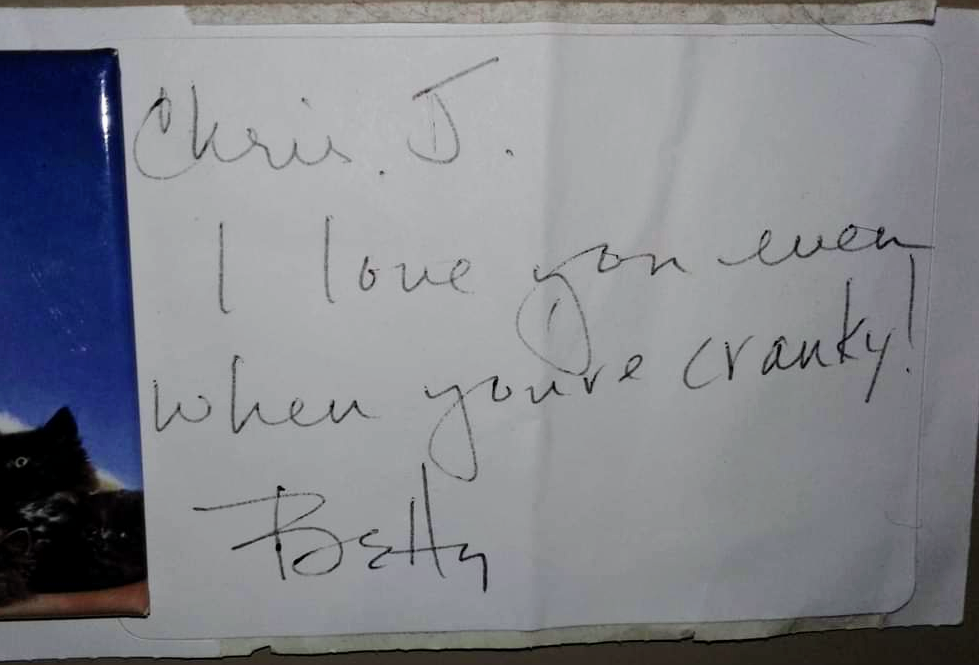 Chris. J.
I love you even
when you're cranky!
Betty